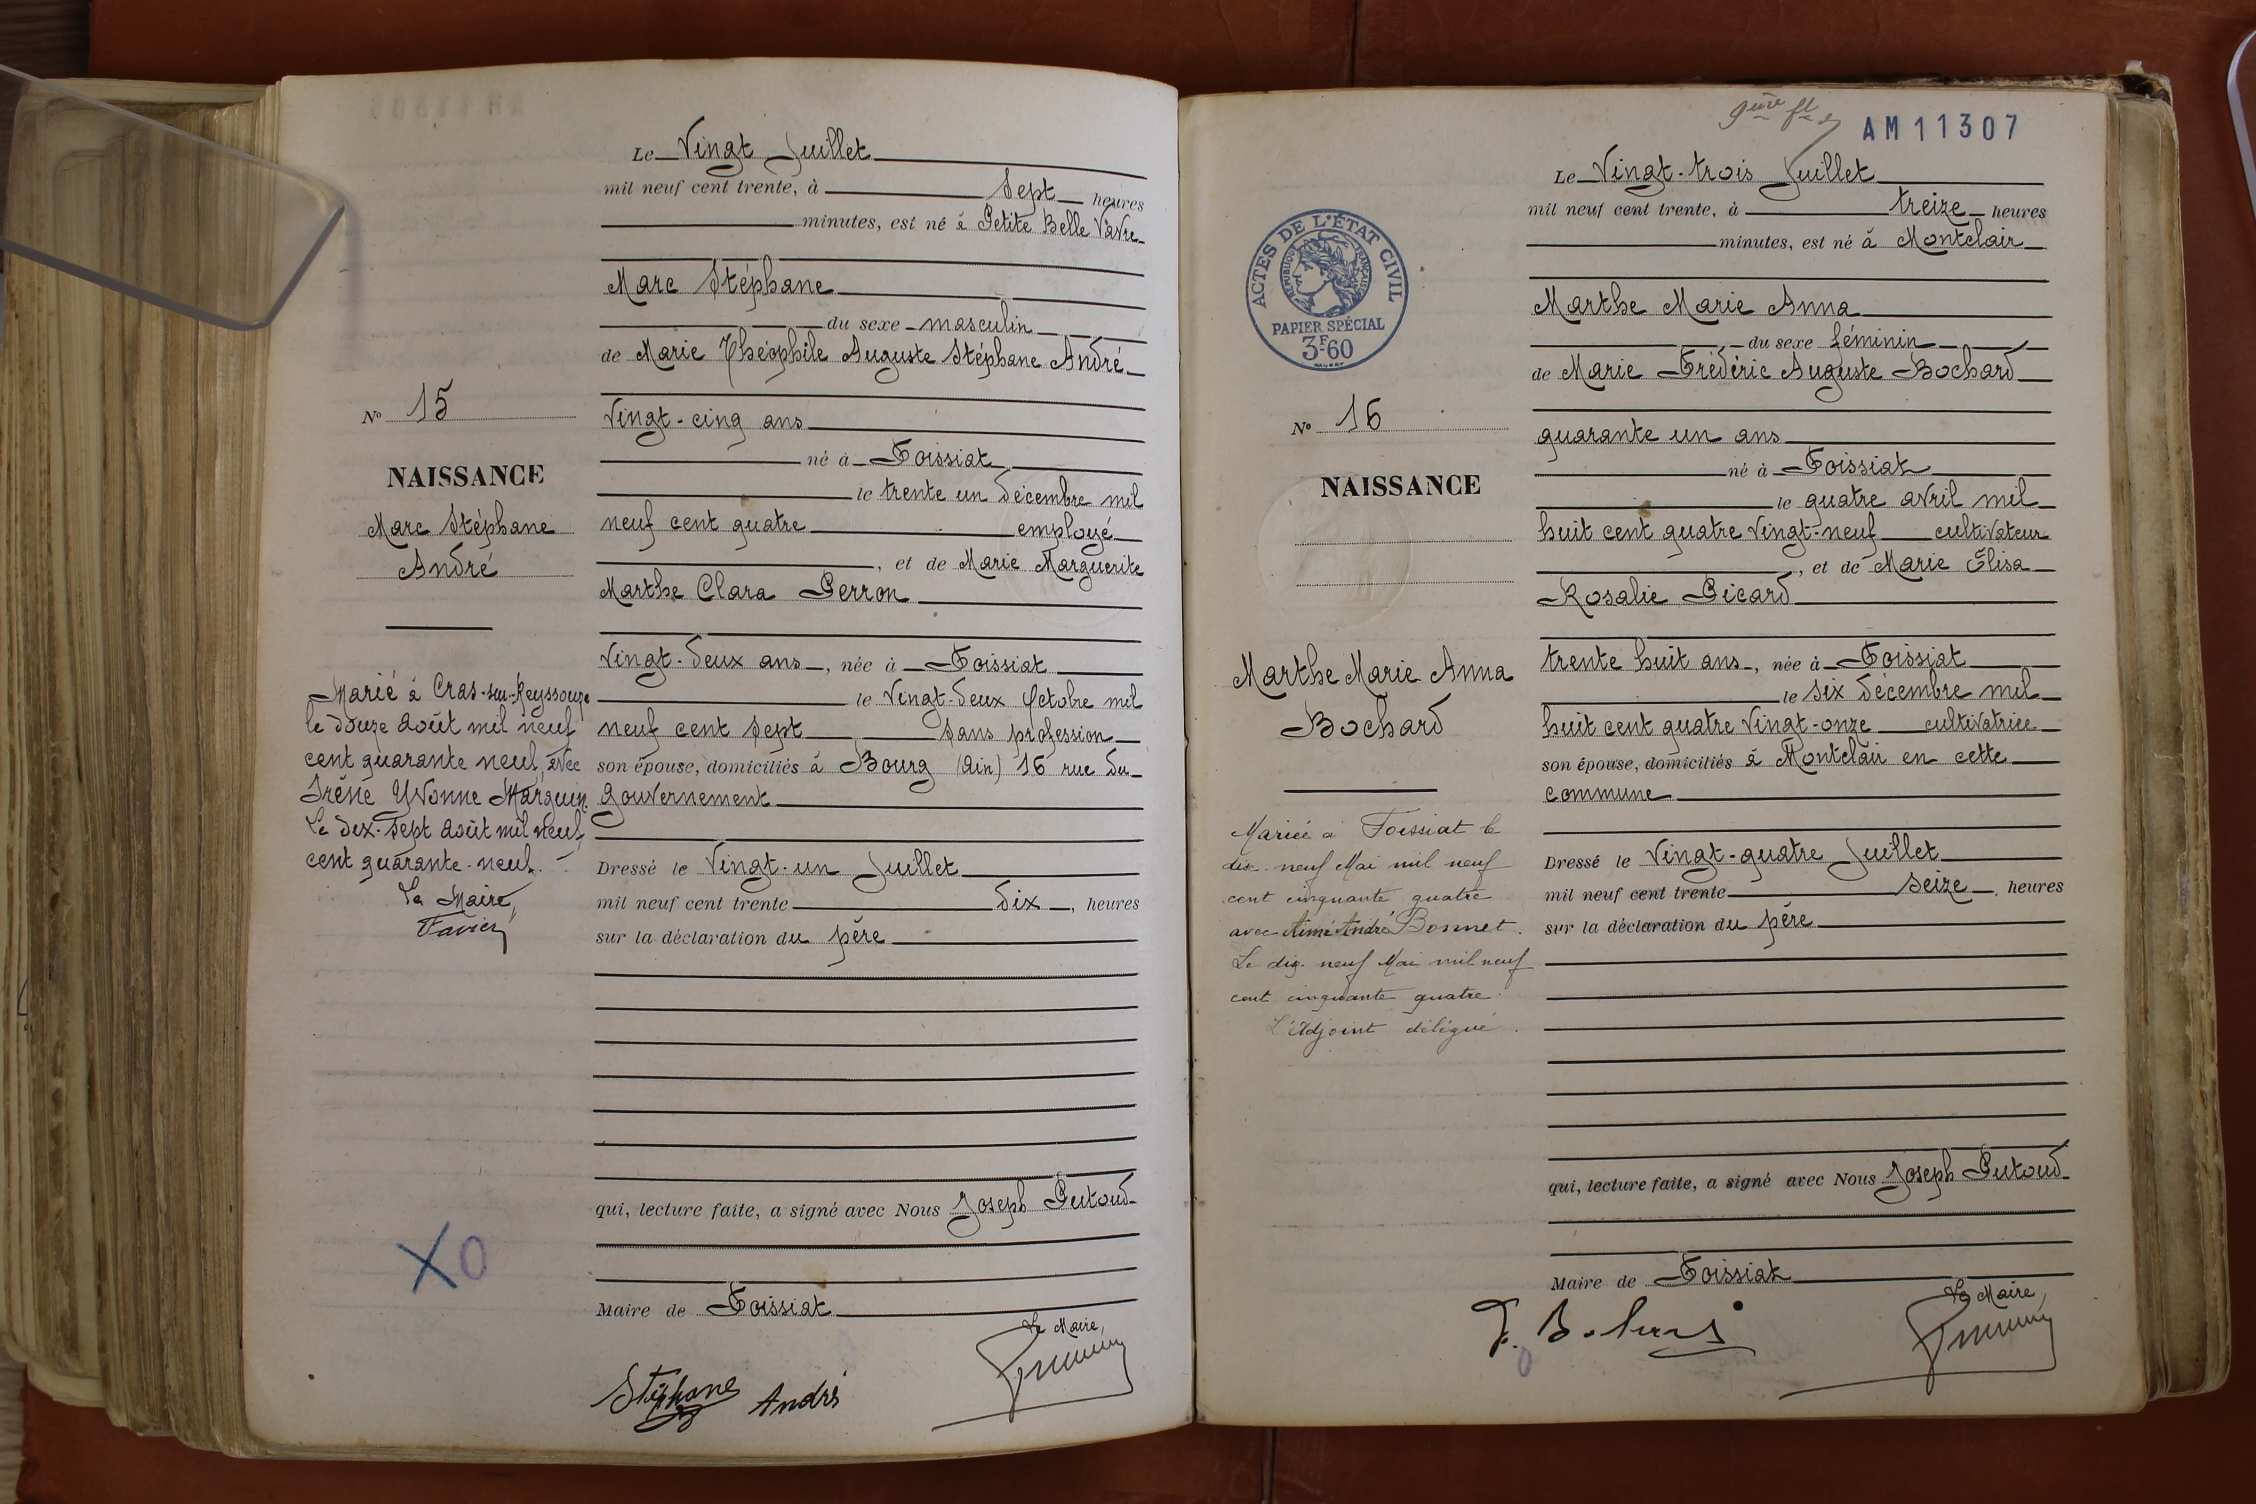 Le Vingt Juillet
mil neuf cent trente, à Sept heures
minutes, est né à Petite Belle Vavre
Marc Stéphane
du sexe masculin
de Marie Théophile Auguste Stéphane André
Vingt-cinq ans
né à Foissiat
le trente un décembre mil
neuf cent quatre employé
, et de Marie Marguerite
Marthe Clara Perron
Vingt-deux ans, née à Foissiat
le Vingt-deux Octobre mil
neuf cent sept Sans profession
son épouse, domiciliés à Bourg (Ain) 16 rue du
Gouvernement
Dressé le Vingt-un Juillet
mil neuf cent trente dix, heures
sur la déclaration du père
qui, lecture faite, a signé avec Nous Joseph Putoud
Maire de Foissiat
Le Maire,
Stéphane André
No 15
NAISSANCE
Marc Stéphane
André
Marié à Cras-sur-Reyssouze
le douze août mil neuf
cent quarante neuf, avec
Irène Yvonne Marguin.
Le dix-sept août mil neuf
cent quarante-neuf.
Le Maire,
Favier
XO
AM 11307
Le Vingt-trois Juillet
mil neuf cent trente, à treize heures
minutes, est né à Montclair
Marthe Marie Anna
du sexe féminin
de Marie Frédéric Auguste Bochard
quarante un ans
né à Foissiat
le quatre avril mil
huit cent quatre Vingt-neuf cultivateur
, et de Marie Élisa
Rosalie Picard
trente huit ans, née à Foissiat
le six décembre mil
huit cent quatre Vingt-onze cultivatrice
son épouse, domiciliés à Montclair en cette
commune
Dressé le Vingt-quatre Juillet
mil neuf cent trente seize, heures
sur la déclaration du père
qui, lecture faite, a signé avec Nous Joseph Putoud
Maire de Foissiat
Le Maire,
ACTES DE L'ÉTAT CIVIL
RÉPUBLIQUE FRANÇAISE
PAPIER SPÉCIAL
3F60
No 16
NAISSANCE
Marthe Marie Anna
Bochard
Mariée à Foissiat le
dix-neuf Mai mil neuf
cent cinquante quatre
avec Aimé André Bonnet.
Le dix-neuf Mai mil neuf
cent cinquante quatre.
L'Adjoint délégué.